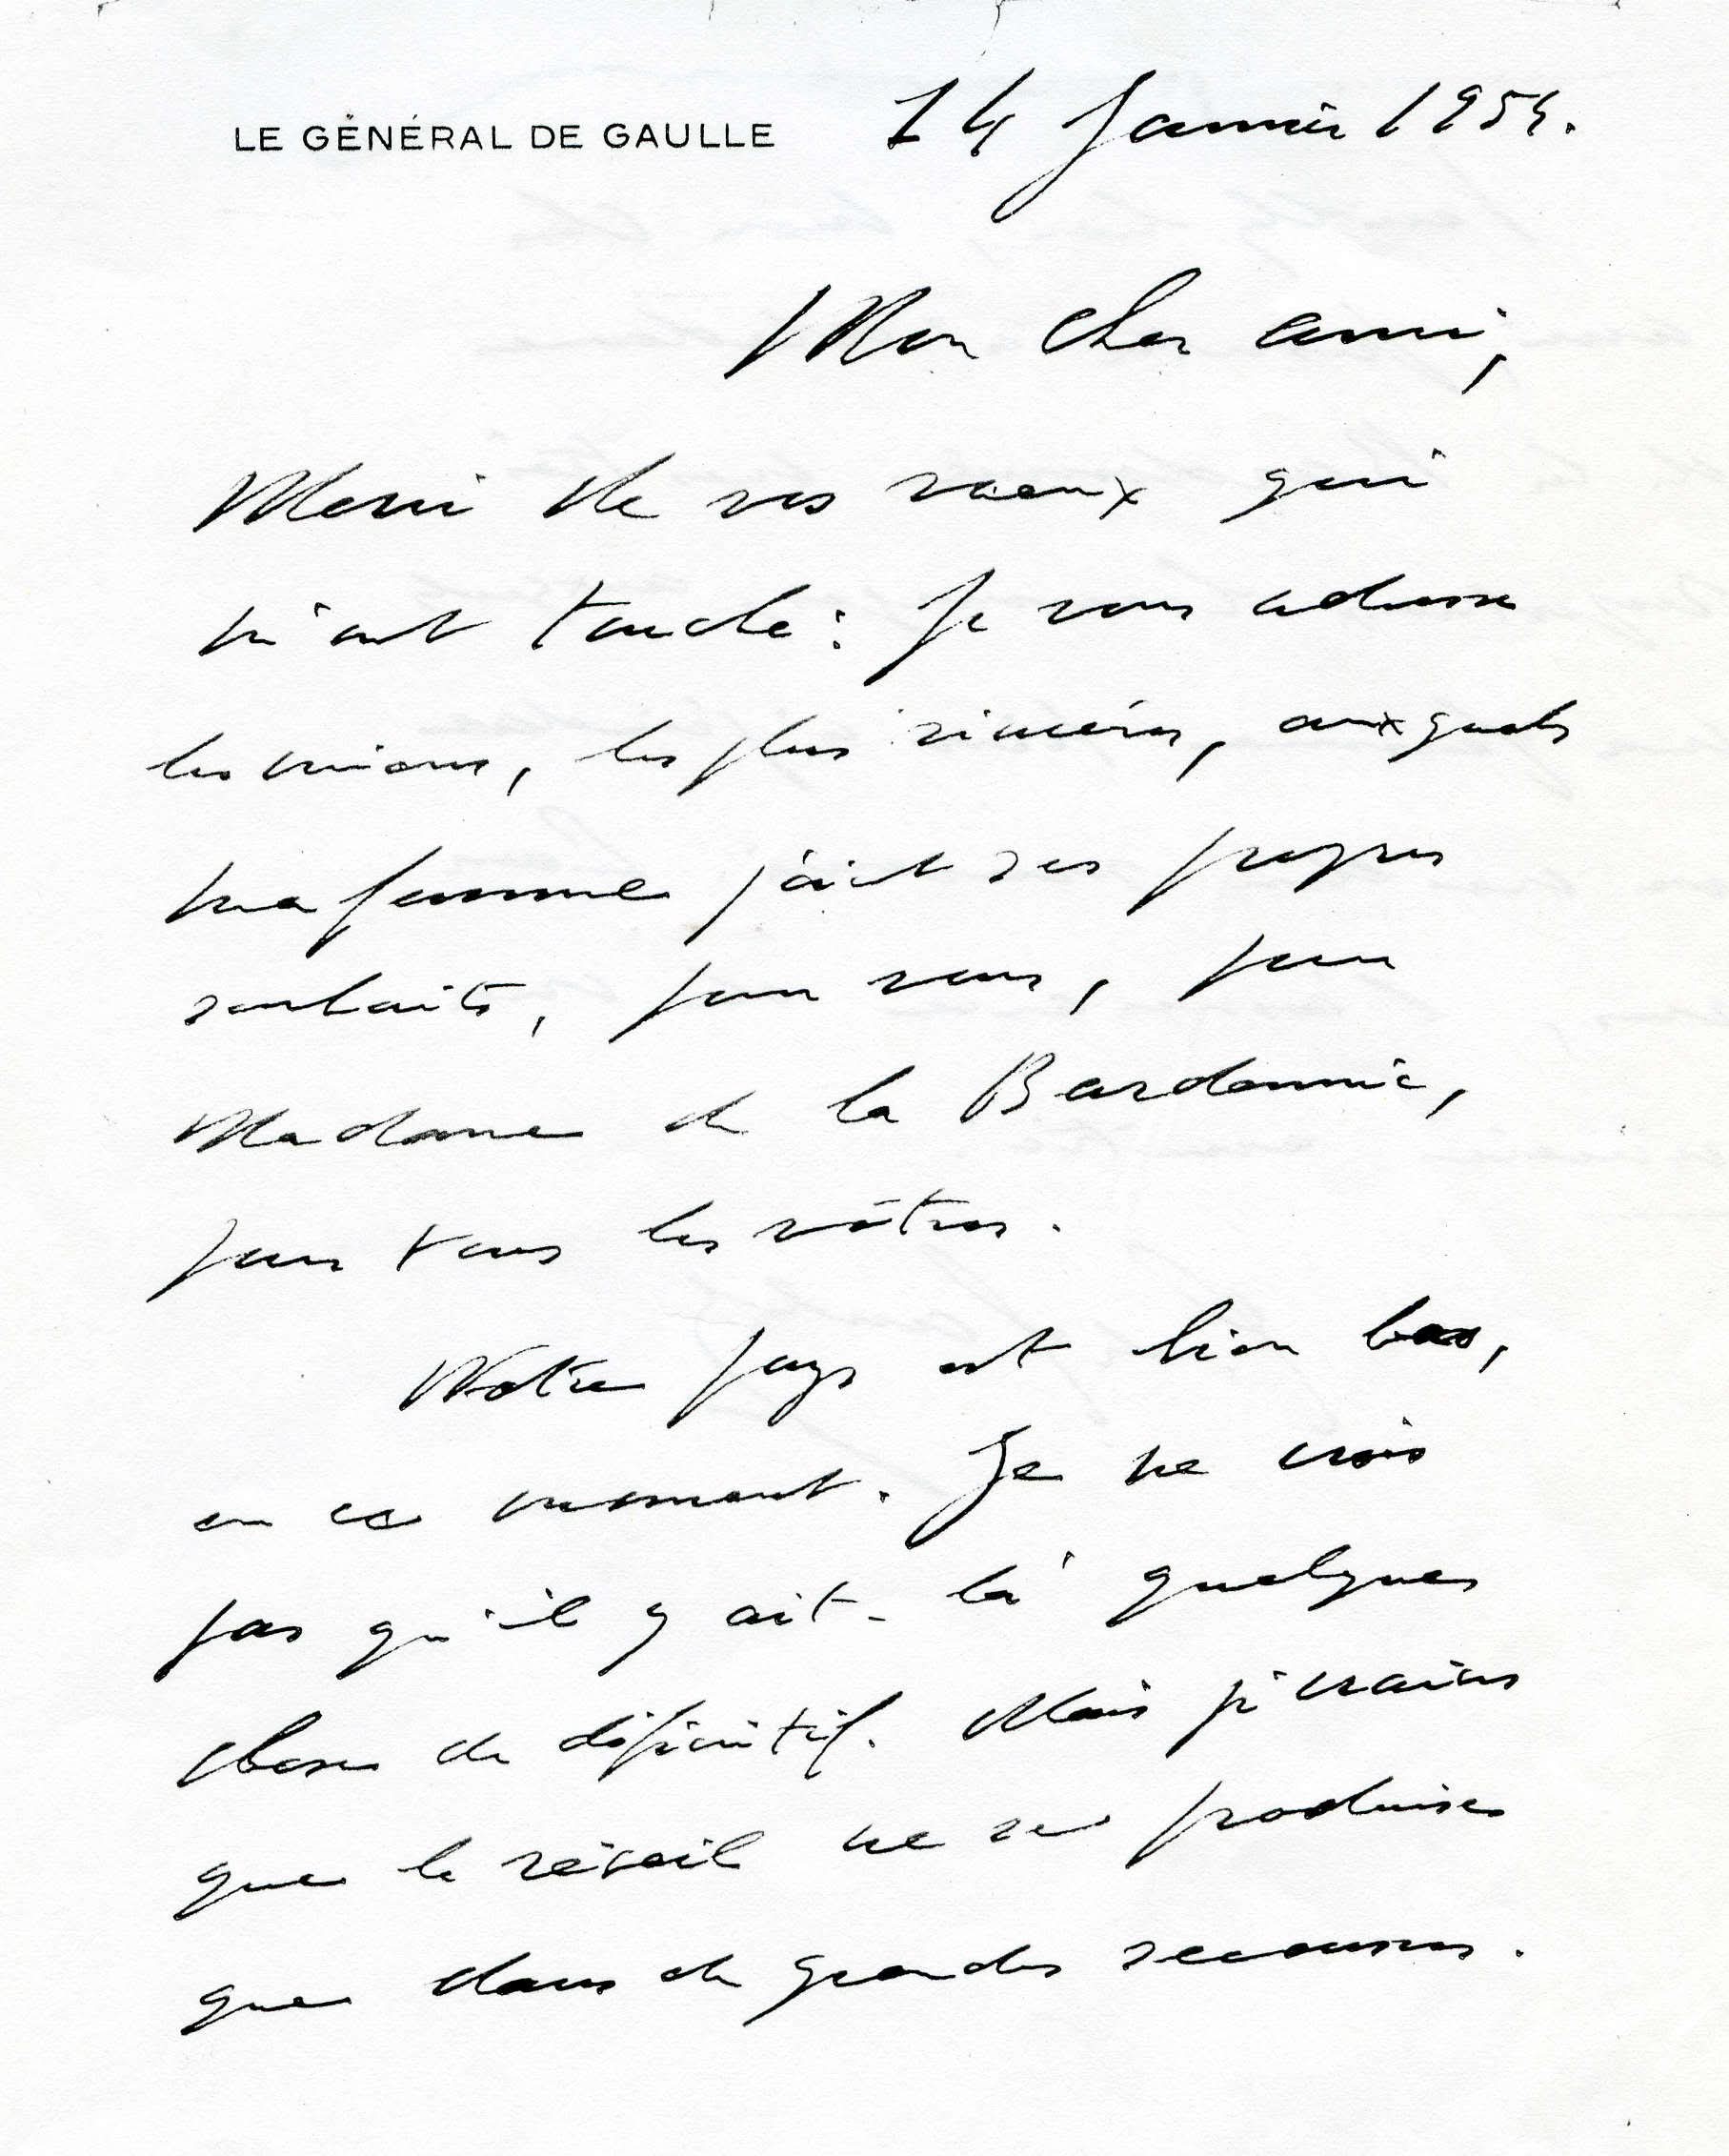 LE GÉNÉRAL DE GAULLE 14 Janvier 1954.
Mon cher ami,
Merci de vos voeux qui
m'ont touché. Je vous adresse
les miens, les plus sincères, auxquels
ma femme joint ses propres
souhaits, pour vous, pour
Madame de la Bardonnie,
pour tous les vôtres.
Notre pays est bien bas,
en ce moment. Je ne crois
pas qu'il y ait là quelque
chose de définitif. Mais je crains
que le réveil ne se produise
que dans de grandes secousses.